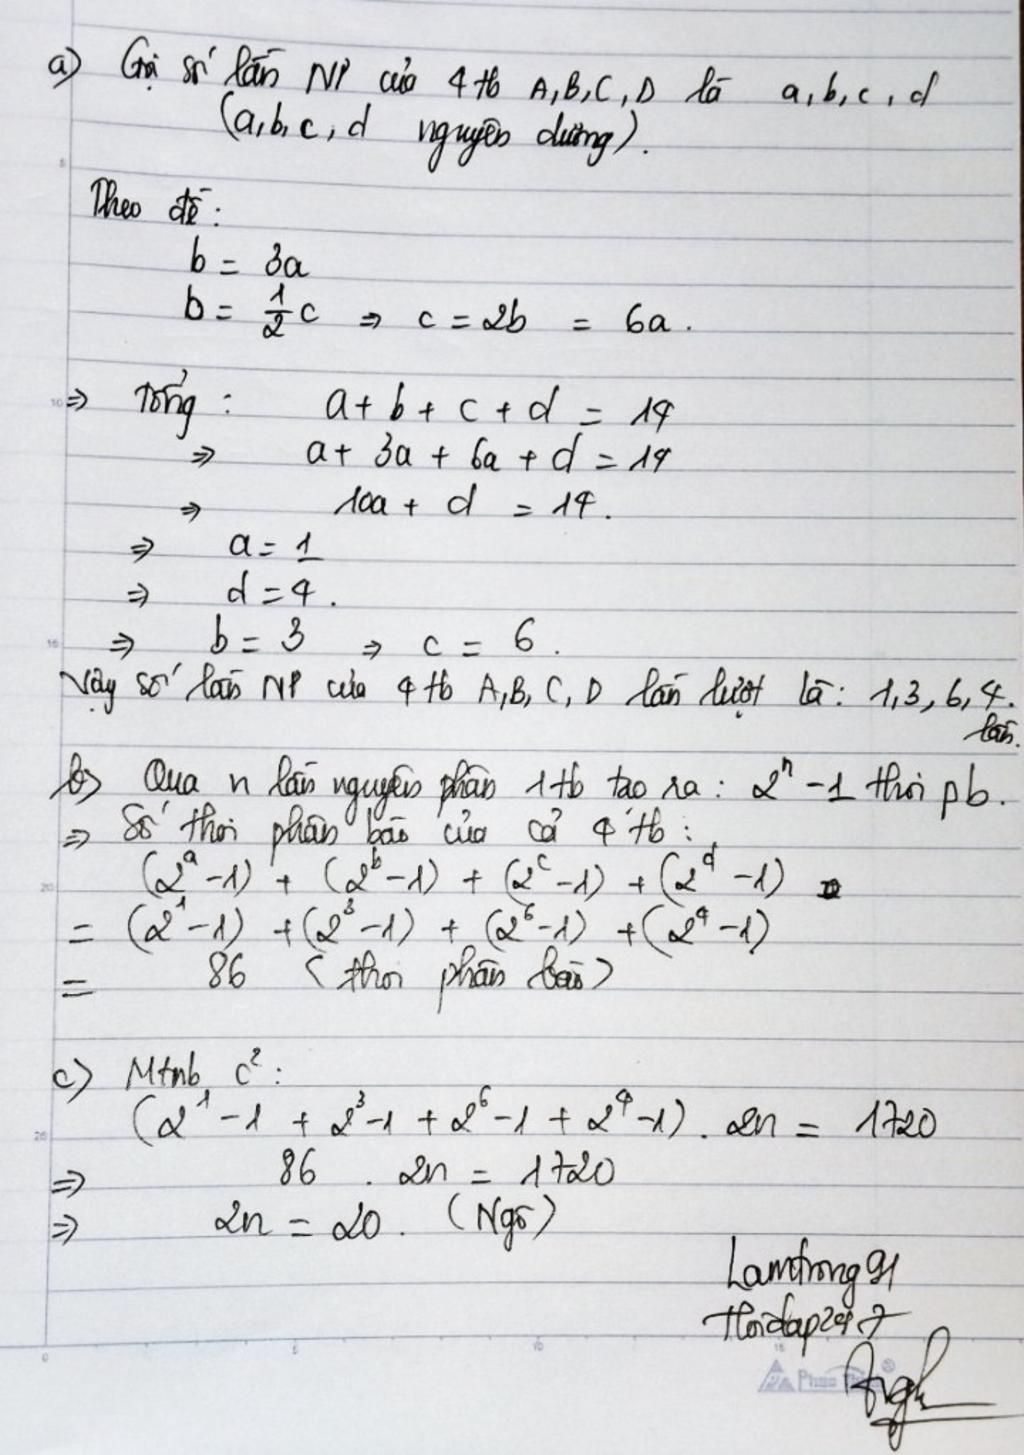 a) Gọi số lần NP của 4 tb A,B,C,D là a,b,c,d
(a,b,c,d nguyên dương).
Theo đề:
b = 3a
b = 1/2 c ⇒ c = 2b = 6a.
⇒ Tổng: a + b + c + d = 14
⇒ a + 3a + 6a + d = 14
⇒ 10a + d = 14.
⇒ a = 1
⇒ d = 4.
⇒ b = 3 ⇒ c = 6.
Vậy số lần NP của 4 tb A,B,C,D lần lượt là: 1,3,6,4.
lần.
b) Qua n lần nguyên phân 1tb tạo ra: 2^n - 1 thoi pb.
⇒ Số thoi phân bào của cả 4 tb:
(2^a - 1) + (2^b - 1) + (2^c - 1) + (2^d - 1)
= (2^1 - 1) + (2^3 - 1) + (2^6 - 1) + (2^4 - 1)
= 86 (thoi phân bào)
c) Mtnb c²:
(2^1 - 1 + 2^3 - 1 + 2^6 - 1 + 2^4 - 1) . 2n = 1720
⇒ 86 . 2n = 1720
⇒ 2n = 20. (Ngô)
Lamtrong91
Hoidap247